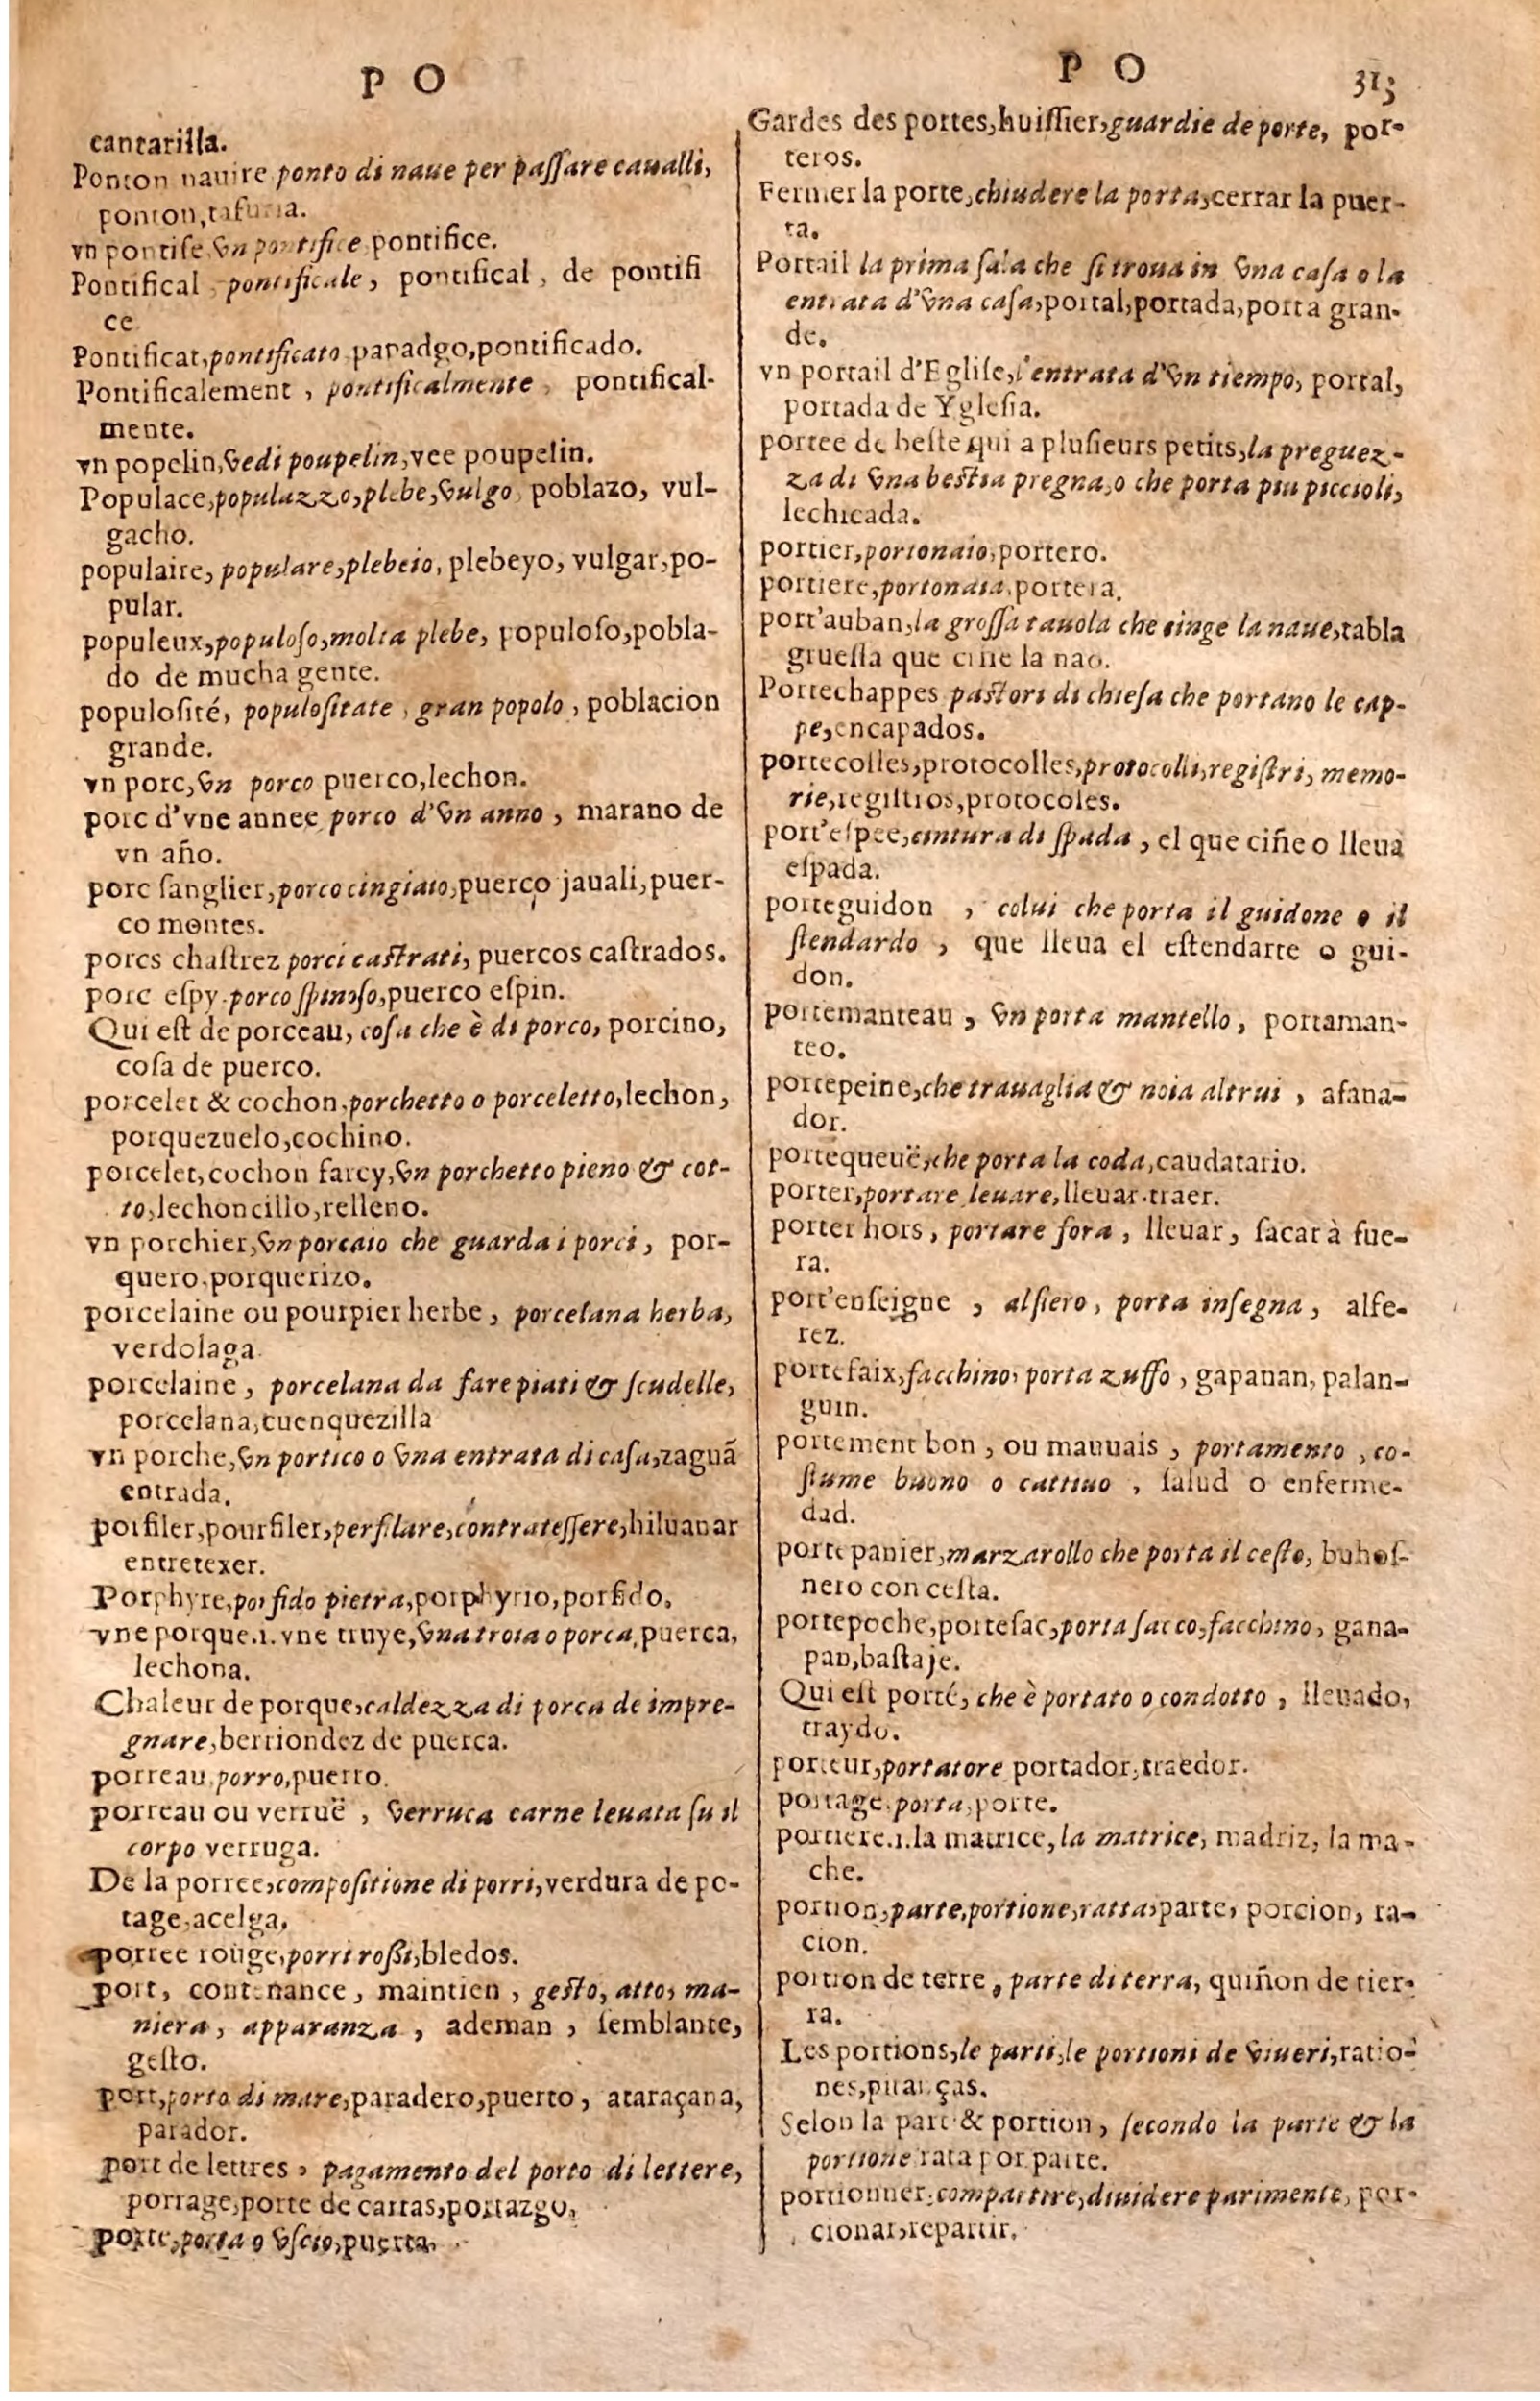 P O
cantarilla.
Ponton nauire ponto di naue per paſſare caualli,
ponton, tafuria.
vn pontife vn pontifice pontifice.
Pontifical, pontificale, pontifical, de pontifi
ce
Pontificat, pontificato papadgo, pontificado.
Pontificalement, pontificalmente, pontifical-
mente.
vn popelin, vedi poupelin, vee poupelin.
Populace, populazzo, plebe, vulgo, poblazo, vul-
gacho.
populaire, populare, plebeio, plebeyo, vulgar, po-
pular.
populeux, populoſo, molta plebe, populoſo, pobla-
do de mucha gente.
populoſité, populoſitate, gran popolo, poblacion
grande.
vn porc, vn porco puerco, lechon.
porc d'vne annee porco d'vn anno, marano de
vn año.
porc ſanglier, porco cingiato, puerco jauali, puer-
co montes.
porcs chaſtrez porci caſtrati, puercos caſtrados.
porc eſpy. porco ſpinoſo, puerco eſpin.
Qui eſt de porceau, coſa che è di porco, porcino,
coſa de puerco.
porcelet & cochon, porchetto o porceletto, lechon,
porquezuelo, cochino.
porcelet, cochon farcy, vn porchetto pieno & cot-
to, lechoncillo, relleno.
vn porchier, vn porcaio che guarda i porci, por-
quero, porquerizo.
porcelaine ou pourpier herbe, porcelana herba,
verdolaga.
porcelaine, porcelana da fare piati & ſcudelle,
porcelana, cuenquezilla
vn porche, vn portico o vna entrata di caſa, zaguã
entrada.
porfiler, pourfiler, perfilare, contrateſſere, hiluanar
entretexer.
Porphyre, porfido pietra, porphyrio, porfido.
vne porque. i. vne truye, vna troia o porca, puerca,
lechona.
Chaleur de porque, caldezza di porca de impre-
gnare, berriondez de puerca.
porreau, porro, puerro.
porreau ou verruë, verruca carne leuata ſu il
corpo verruga.
De la porree, compoſitione di porri, verdura de po-
tage, acelga.
porree rouge, porri roßi, bledos.
port, contenance, maintien, geſto, atto, ma-
niera, apparanza, ademan, ſemblante,
geſto.
port, porto di mare, paradero, puerto, ataraçana,
parador.
port de lettres, pagamento del porto di lettere,
porrage, porte de cartas, portazgo.
porte, porta o vſcio, puerta.
P O 313
Gardes des portes, huiſſier, guardie de porte, por-
teros.
Fermer la porte, chiudere la porta, cerrar la puer-
ta.
Portail la prima ſala che ſi troua in vna caſa o la
entrata d'vna caſa, portal, portada, porta gran-
de.
vn portail d'Egliſe, l'entrata d'vn tiempo, portal,
portada de Ygleſia.
portee de beſte qui a pluſieurs petits, la preguez-
za di vna beſtia pregna, o che porta piu piccioli,
lechicada.
portier, portonaio, portero.
portiere, portonaia, portera.
port'auban, la groſſa tauola che cinge la naue, tabla
grueſſa que ciñe la nao.
Portechappes paſtori di chieſa che portano le cap-
pe, encapados.
portecolles, protocolles, protocolli, regiſtri, memo-
rie, regiſtros, protocoles.
port'eſpee, cintura di ſpada, el que ciñe o lleua
eſpada.
porteguidon, colui che porta il guidone o il
ſtendardo, que lleua el eſtendarte o gui-
don.
portemanteau, vn porta mantello, portaman-
teo.
portepeine, che trauaglia & noia altrui, afana-
dor.
portequeuë, che porta la coda, caudatario.
porter, portare leuare, lleuar. traer.
porter hors, portare fora, lleuar, ſacar à fue-
ra.
port'enſeigne, alfiero, porta inſegna, alfe-
rez.
portefaix, facchino, porta zuffo, gapanan, palan-
guin.
portement bon, ou mauuais, portamento, co-
ſtume buono o cattiuo, ſalud o enferme-
dad.
porte panier, marzarollo che porta il ceſto, buhoſ-
nero con ceſta.
portepoche, porteſac, porta ſacco, facchino, gana-
pan, baſtaje.
Qui eſt porté, che è portato o condotto, lleuado,
traydo.
porteur, portatore portador, traedor.
portage, porta, porte.
portiere. i. la matrice, la matrice, madriz, la ma-
che.
portion, parte, portione, ratta, parte, porcion, ra-
cion.
portion de terre, parte di terra, quiñon de tier-
ra.
Les portions, le parti, le portioni de viueri, ratio-
nes, pitanças.
Selon la part & portion, ſecondo la parte & la
portione rata por parte.
portionner, compartire, diuidere parimente, por-
cionar, repartir.